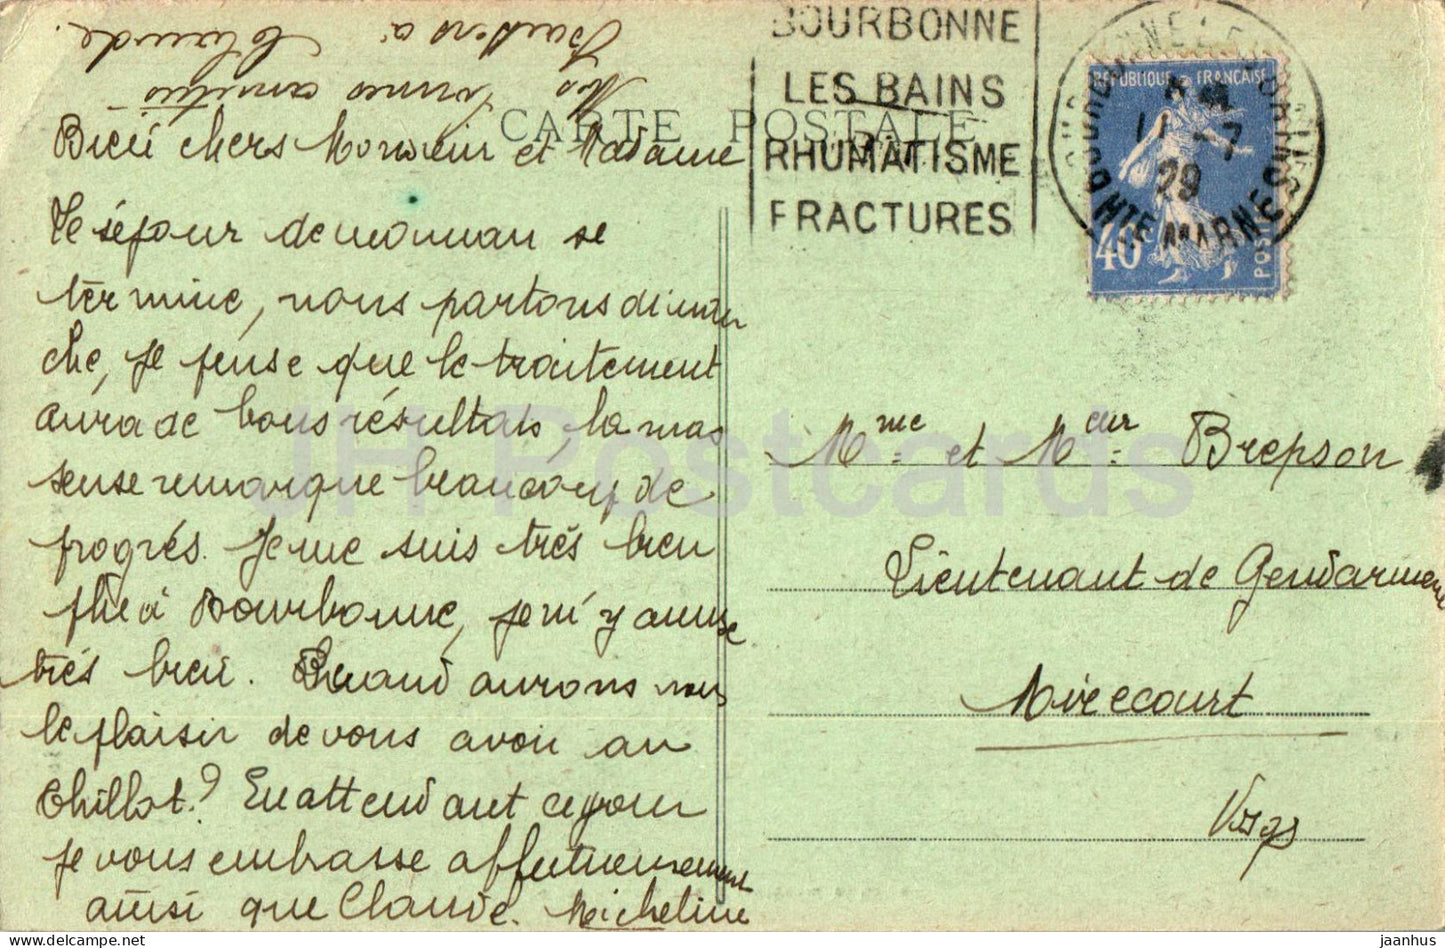 Nos bonnes amitiés
Baisers à Claude.
CARTE POSTALE
Bien chers Monsieur et Madame
Le séjour de maman se
termine, nous partons diman
che, je pense que le traitement
aura de bons résultats, la mas
seuse remarque beaucoup de
progrès. Je me suis très bien
plue à Bourbonne, je m'y amuse
très bien. Quand aurons nous
le plaisir de vous avoir au
Thillot? En attendant ce jour
je vous embrasse affectueusement
ainsi que Claude. Micheline
BOURBONNE
LES BAINS
RHUMATISME
FRACTURES
BOURBONNE-LES-BAINS
11 -7
29
HTE MARNE
REPUBLIQUE FRANÇAISE
40c
POSTES
Mme et Mr Brepson
Lieutenant de Gendarmerie
Mirecourt
Vosges
JH Postcards
jaanhus @ delcampe.net